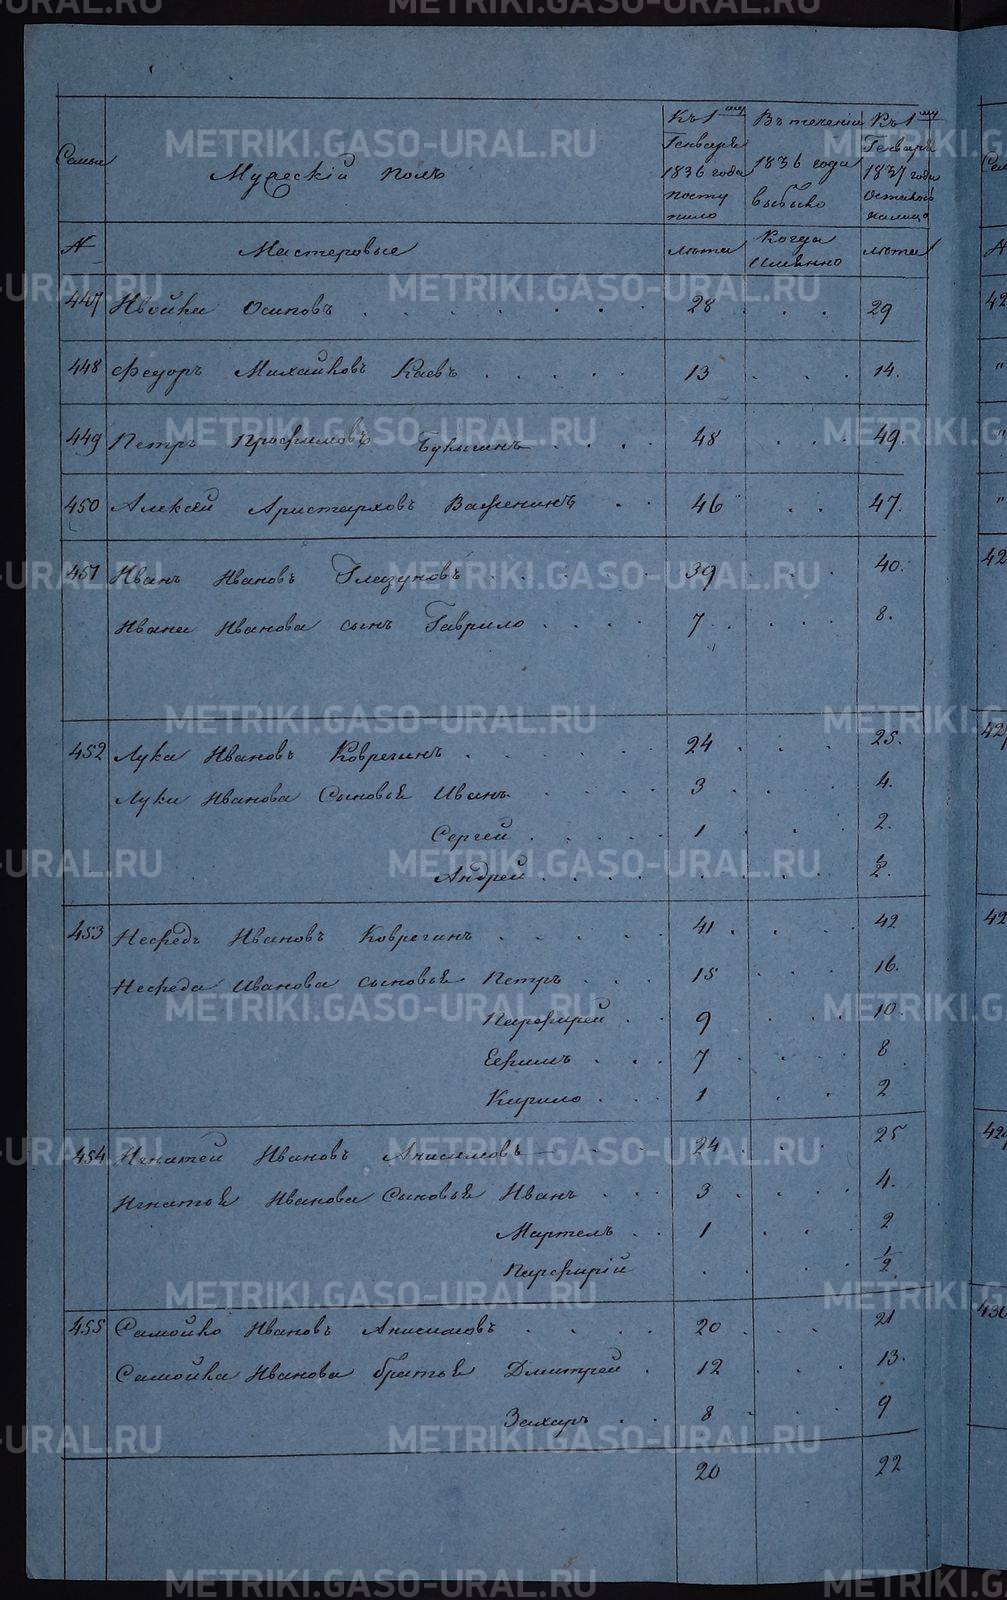 Семьи
Мужескій полъ
Къ 1му Генваря 1836 года поступило
Въ теченіи 1836 года выбыло
Къ 1му Генваря 1837 года
№
Мастеровые
лѣта
Когда именно
лѣта
447 Ивойка Осиповъ 28 29
448 Федоръ Михайловъ Каевъ 13 14.
449 Петръ Трофимовъ 48 49.
450 Алексѣй Аристарховъ Важенинъ 46 47.
451 Иванъ Ивановъ Глазуновъ 39 40.
Ивана Иванова сынъ Гаврило 7 8.
452 Лука Ивановъ Коврегинъ 24 25.
Луки Иванова Сыновья Иванъ 3 4.
Сергей 1 2.
Андрей 1/2.
453 Нефедъ Ивановъ Коврегинъ 41 42
Нефеда Иванова сыновья Петръ 15 16.
Парфирей 9 10.
Ефимъ 7 8
Кирило 1 2
454 Игнатей Ивановъ Анисимовъ 24 25
Игнатья Иванова Сыновья Иванъ 3 4.
Мартелъ 1 2
Парфирій 1/2
455 Самойло Ивановъ Анисимовъ 20 21
Самойла Иванова братья Дмитрей 12 13.
Захаръ 8 9
20 22
METRIKI.GASO-URAL.RU